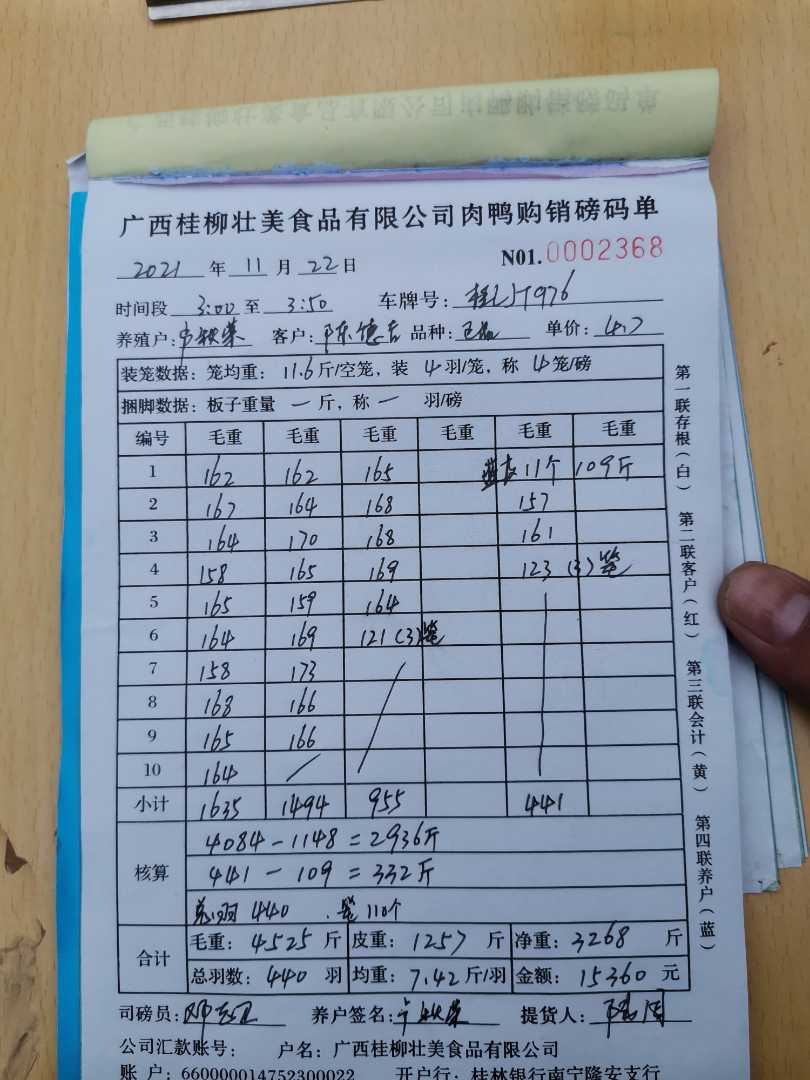 广西桂柳壮美食品有限公司肉鸭购销磅码单
2021 年 11 月 22 日 N01.0002368
时间段 3:00 至 3:50 车牌号:
养殖户: 客户: 陈德吉 品种: 单价: 4.7
装笼数据: 笼均重: 11.6 斤/空笼, 装 4 羽/笼, 称 4 笼/磅
捆脚数据: 板子重量 一 斤, 称 一 羽/磅
编号 毛重 毛重 毛重 毛重 毛重 毛重
1 162 162 165 11个 109斤
2 167 164 168 157
3 164 170 168 161
4 158 165 169 123 (3)笼
5 165 159 164
6 164 169 121 (3)笼
7 158 173
8 168 166
9 165 166
10 164
小计 1635 1494 955 441
核算 4084-1148=2936斤
441-109=332斤
总羽 440 . 笼 110个
合计 毛重: 4525 斤 皮重: 1257 斤 净重: 3268 斤
总羽数: 440 羽 均重: 7.42 斤/羽 金额: 15360 元
司磅员: 养户签名: 提货人:
公司汇款账号: 户名: 广西桂柳壮美食品有限公司
账 户: 660000014752300022 开户行: 桂林银行南宁隆安支行
第一联存根(白) 第二联客户(红) 第三联会计(黄) 第四联养户(蓝)